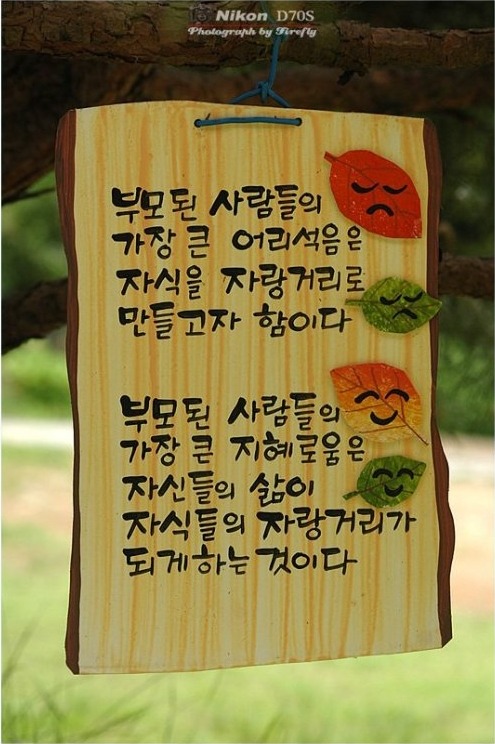 Nikon D70S
Photograph by Firefly
부모된 사람들의
가장 큰 어리석음은
자식을 자랑거리로
만들고자 함이다
부모된 사람들의
가장 큰 지혜로움은
자신들의 삶이
자식들의 자랑거리가
되게하는 것이다